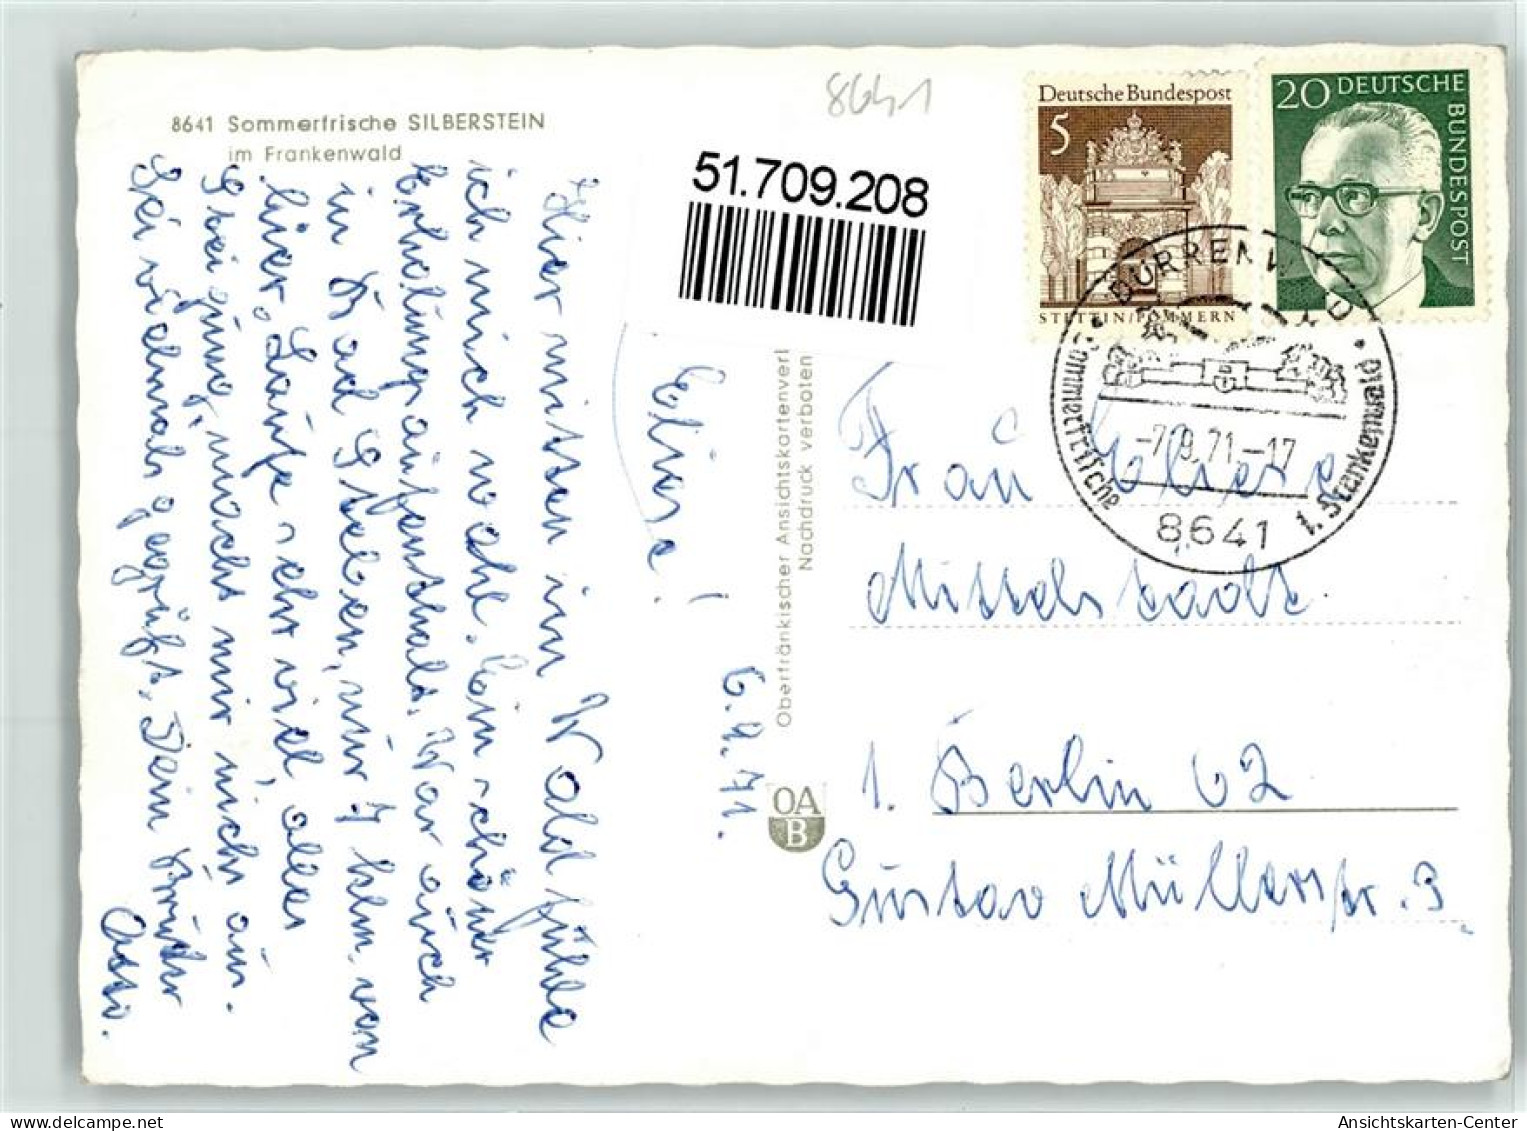 8641 Sommerfrische SILBERSTEIN
im Frankenwald
8641
51.709.208
Deutsche Bundespost
5
STETTIN/POMMERN
20 DEUTSCHE
BUNDESPOST
DÜRRENWAID
Sommerfrische
-7.9.71.-17
8641
i. Frankenwald
Eliese!
6.9.71.
Hier mitten im Wald fühle
ich mich wohl. Ein schöner
Erholungsaufenthalt. War auch
in Bad Steben, nur 7 klm. von
hier. Laufe sehr viel, alles
Steigung, macht mir nichts aus.
Sei vielmals gegrüßt. Dein Bruder
Otto.
Oberfränkischer Ansichtskartenverl
Nachdruck verboten
OA
B
Frau Eliese
Mittelstädt
1. Berlin 62
Gustav Müllerstr. 9
Ansichtskarten-Center